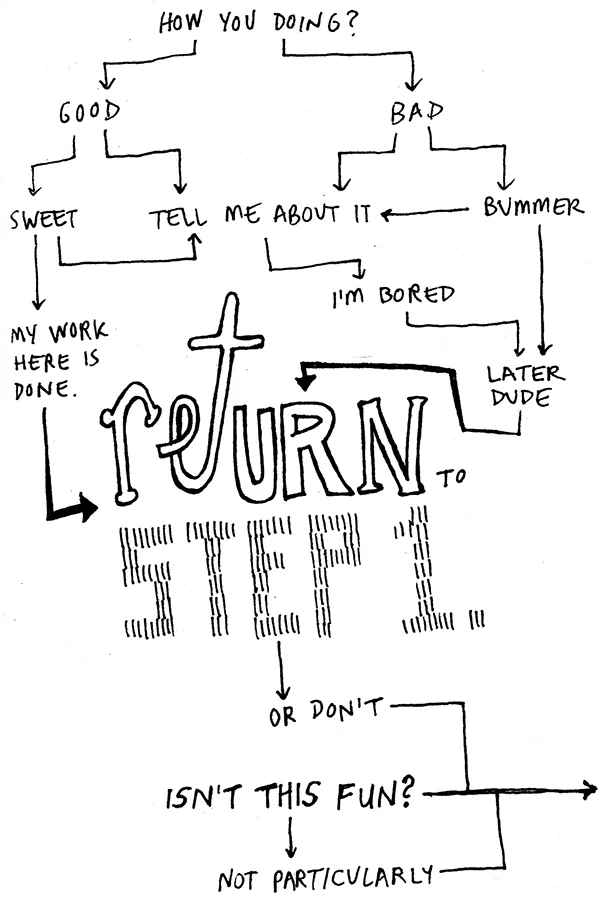 HOW YOU DOING?
GOOD
BAD
SWEET
TELL ME ABOUT IT
BUMMER
I'M BORED
MY WORK
HERE IS
DONE.
LATER
DUDE
retURN TO
STEP 1.
OR DON'T
ISN'T THIS FUN?
NOT PARTICULARLY